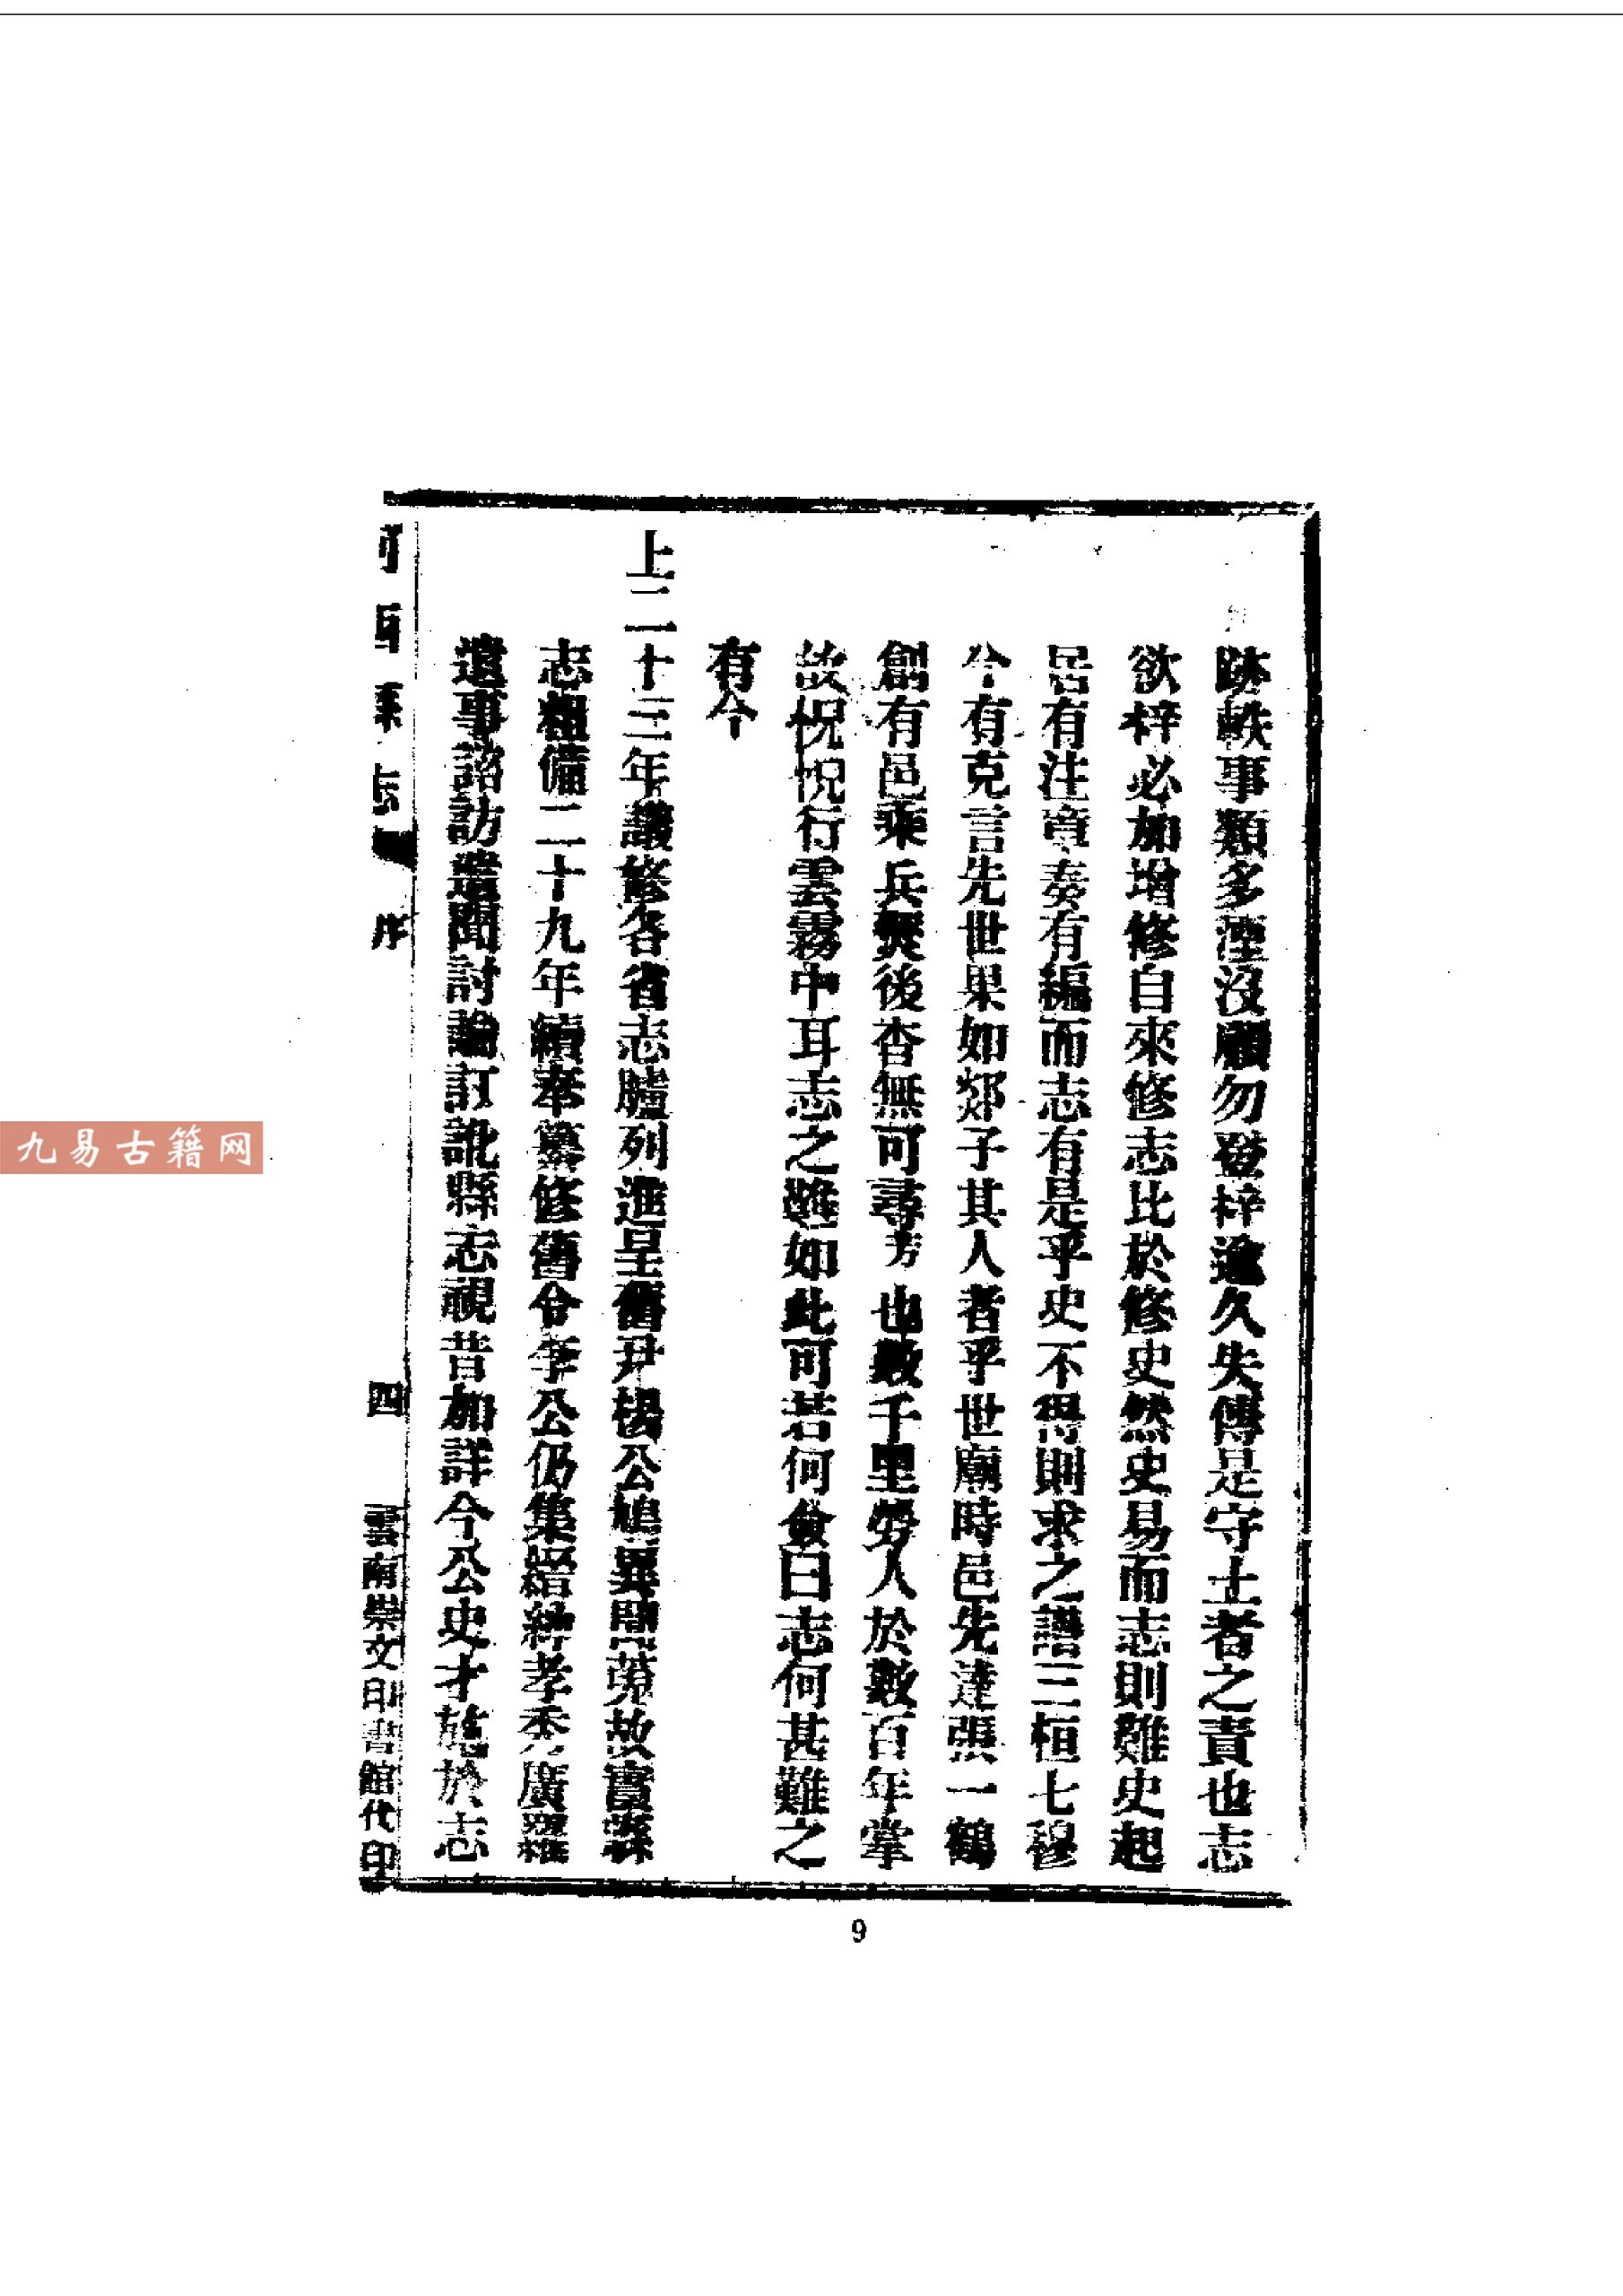 跡軼事類多湮沒願勿登梓逾久失傳是守土者之責也志
欲梓必加增修自來修志比於修史然史易而志則難史起
居有注章奏有編而志有是乎史不得則求之譜三桓七穆
今有克言先世果如郯子其人者乎世廟時邑先達張一鶴
創有邑乘兵燹後杳無可尋茫也數千里勞人於數百年掌
故怳怳行雲霧中耳志之難如此可若何僉曰志何甚難之
有今
上二十三年議修各省志臚列進呈舊尹楊公鳩異聞蒐故實縣
志粗備二十九年續奉纂修舊令李公仍集縉紳孝秀廣羅
遺事諮訪遺聞討論訂訛縣志視昔加詳今公史才施於志
河西縣志 序 四 雲南崇文印書館代印
9
九易古籍网